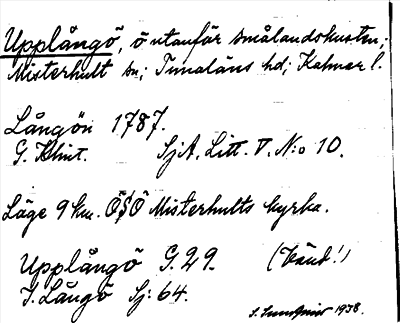 Upplångö, ö utanför smålandskusten;
Misterhult sn; Tunaläns hd; Kalmar l.
Långön 1787.
G. Klint. Sj.A. Litt. V. N:o 10.
Läge 9 km. ÖSÖ Misterhults kyrka.
Upplångö G. 29. (känd!)
Y. Långö Sj: 64.
1938.